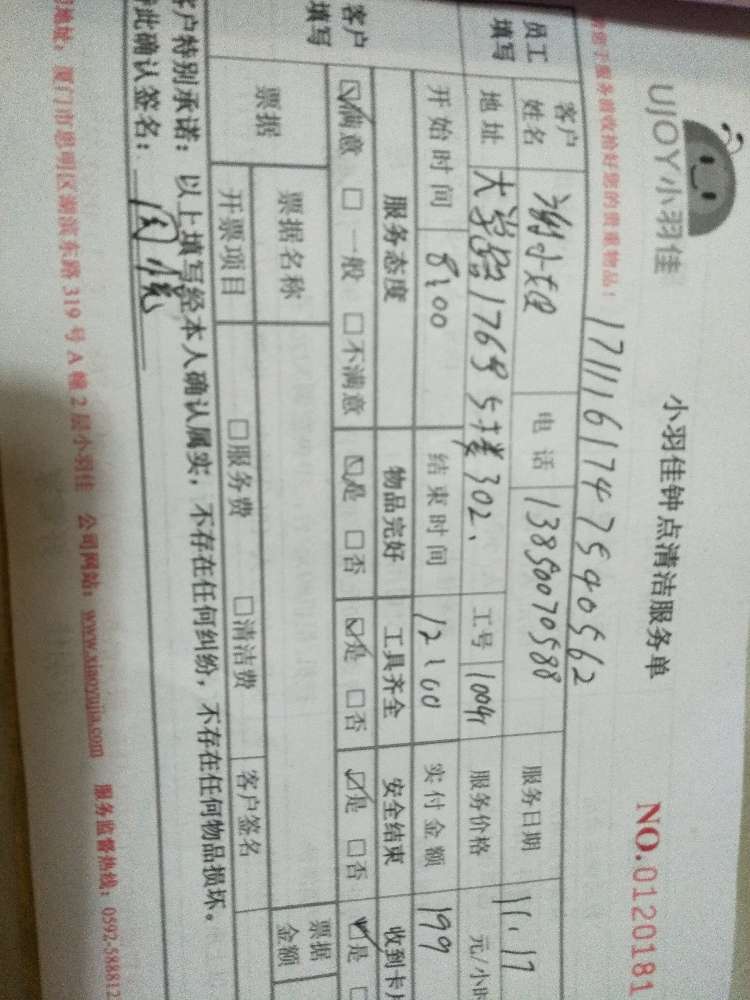 UJOY小羽佳
小羽佳钟点清洁服务单
NO.0120181
服务前收拾好您的贵重物品！
17111617475940562
员工填写
客户姓名 谢小姐 电话 13850070588 服务日期 11.17
地址 大学路176号5楼302、 工号 10041 服务价格 元/小时
开始时间 8:00 结束时间 12:00 实付金额 199
客户填写
服务态度 物品完好 工具齐全 安全结束 收到卡片
☑满意 □一般 □不满意 ☑是 □否 ☑是 □否 ☑是 □否 ☑是 □
票据 票据名称 票据金额
开票项目 □服务费 □清洁费 客户签名
客户特别承诺：以上填写经本人确认属实，不存在任何纠纷，不存在任何物品损坏。
此确认签名：
地址：厦门市思明区湖滨东路319号A幢2层小羽佳 公司网站：www.xiaoyujia.com 服务监督热线：0592-588812